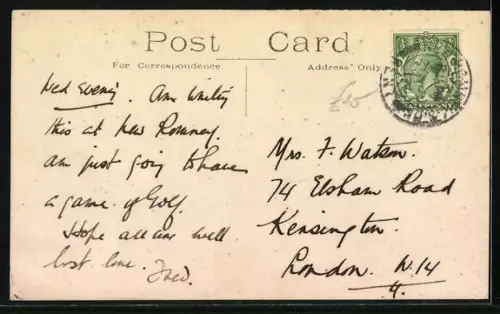 Post Card
For Correspondence
Address Only
Wed Evening. Am writing
this at New Romney.
am just going to have
a game of Golf.
Hope all are well.
best love. Fred.
Mrs. F. Watson.
74 Elsham Road
Kensington.
London. W.14